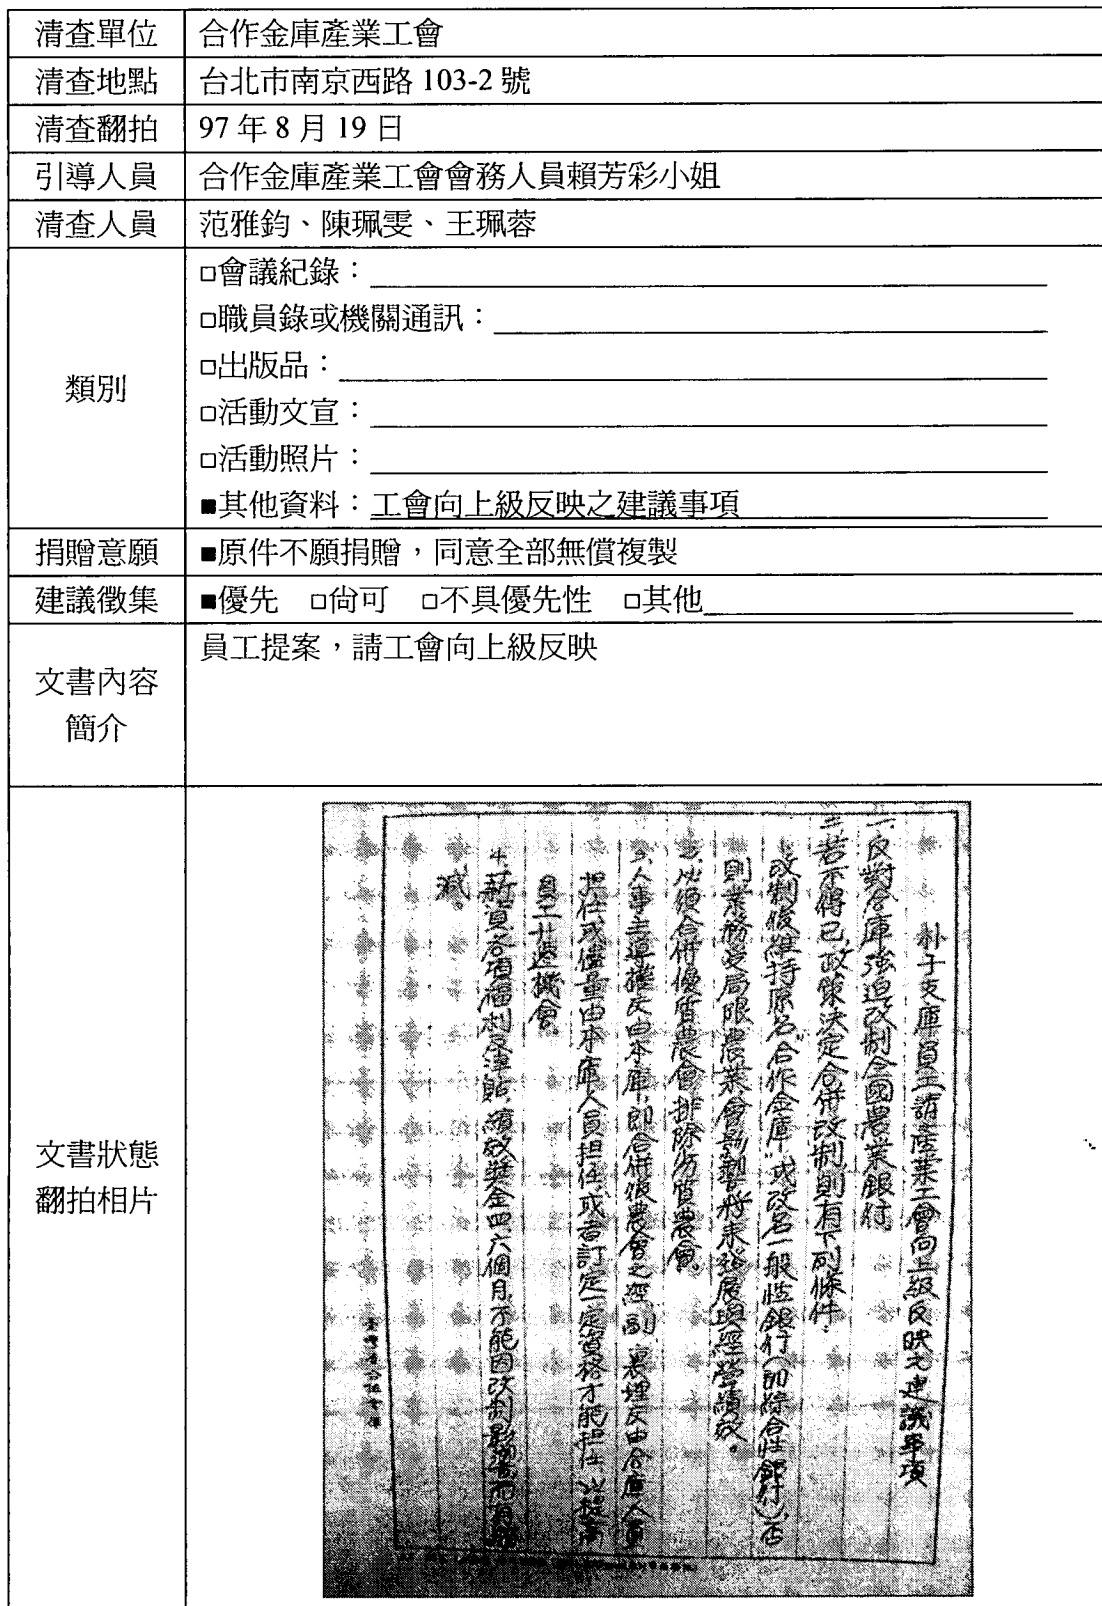 清查單位 合作金庫產業工會
清查地點 台北市南京西路 103-2 號
清查翻拍 97 年 8 月 19 日
引導人員 合作金庫產業工會會務人員賴芳彩小姐
清查人員 范雅鈞、陳珮雯、王珮蓉
類別
□會議紀錄：
□職員錄或機關通訊：
□出版品：
□活動文宣：
□活動照片：
■其他資料：工會向上級反映之建議事項
捐贈意願 ■原件不願捐贈，同意全部無償複製
建議徵集 ■優先 □尚可 □不具優先性 □其他
文書內容
簡介
員工提案，請工會向上級反映
文書狀態
翻拍相片
朴子支庫員工請產業工會向上級反映之建議事項
一、反對合庫強迫改制全國農業銀行
二、若不得已，政策決定合併改制則有下列條件：
改制後維持原名"合作金庫"或改名一般性銀行(如綜合性銀行)，否
則業務受局限農業會影響將來發展與經營績效。
2、必須合併優質農會，排除劣質農會。
3、人事主導權反由本庫，即合併後農會之經、副、襄理反由合庫人員
担任或儘量由本庫人員担任，或者訂定一定資格才能担任，以提高
員工升遷機會。
4、薪資、各項福利及津貼、績效獎金四．六個月，不能因改制影響而有
減。